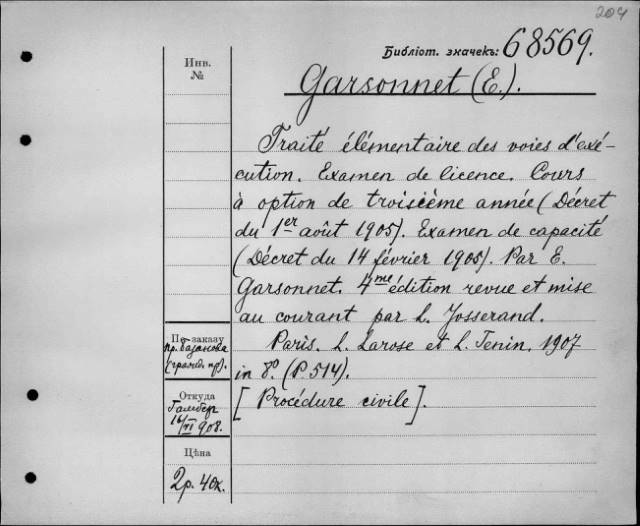 204
Библіот. значекъ: 68569.
Инв.
№
Garsonnet (E.).
Traité élémentaire des voies d'exé-
cution. Examen de licence. Cours
à option de troisième année (Décret
du 1er août 1905). Examen de capacité
(Décret du 14 février 1905). Par E.
Garsonnet. 4me édition revue et mise
au courant par L. Josserand.
Paris. L. Larose et L. Tenin. 1907
in 8º. (P. 514).
[Procédure civile].
По заказу
пр. Базанова
(гражд. пр.).
Откуда
Гамбер
16/VI 908.
Цѣна
2р. 40к.